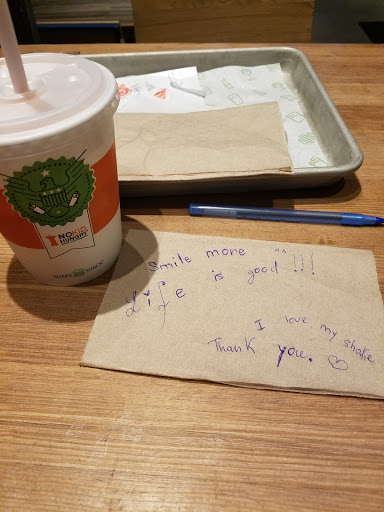 NO KID
HUNGRY
SHAKE SHACK
Smile more ^^
Life is good !!!
I love my shake
Thank you. ♡